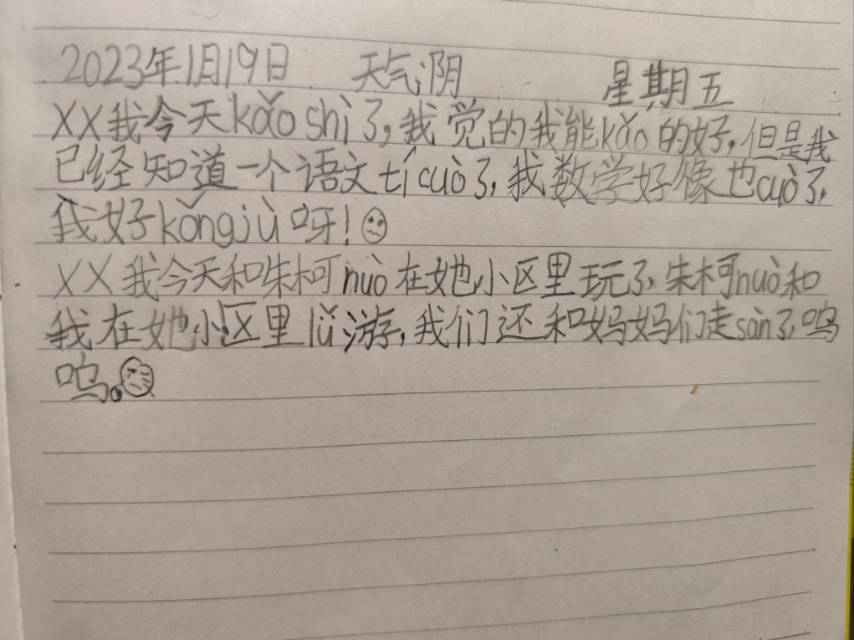 2023年1月19日 天气:阴 星期五
XX我今天kǎo shì了,我觉的我能kǎo的好,但是我
已经知道一个语文tí cuò了,我数学好像也cuò了,
我好kǒngjù呀!
XX我今天和朱柯nuò在她小区里玩了,朱柯nuò和
我在她小区里lǚ游,我们还和妈妈们走sàn了呜
呜。